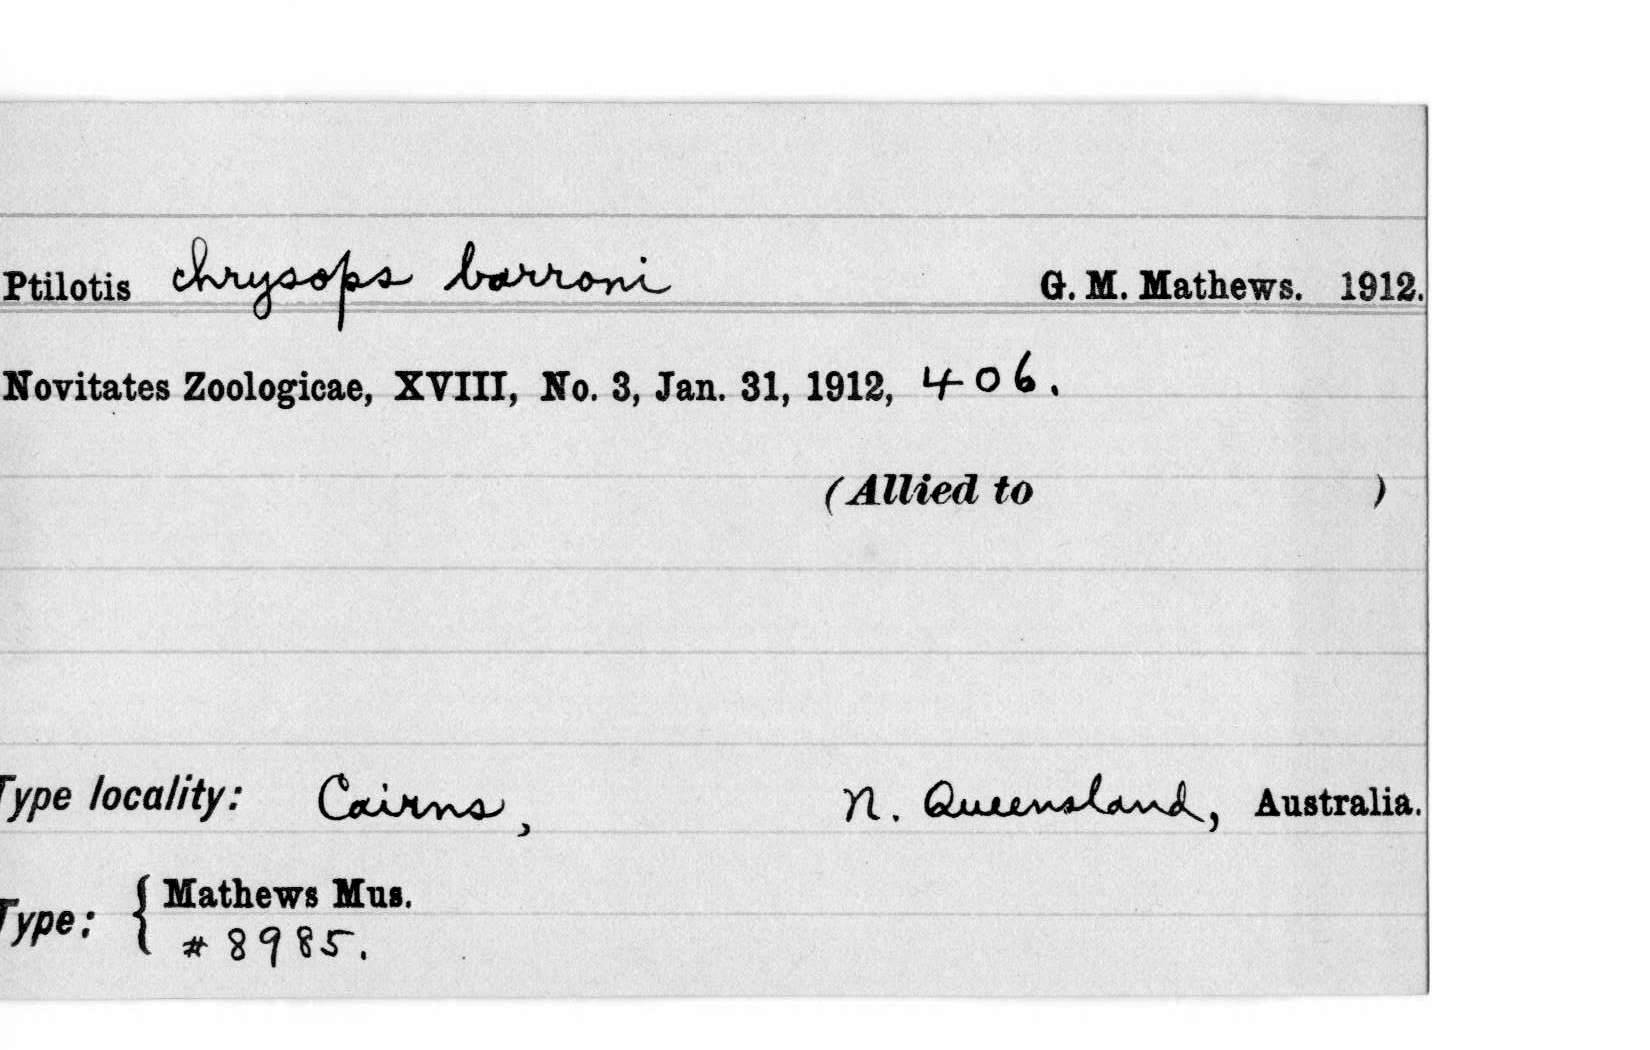 Ptilotis chrysops barroni G. M. Mathews. 1912.
Novitates Zoologicae, XVIII, No. 3, Jan. 31, 1912, 406.
(Allied to )
Type locality: Cairns, N. Queensland, Australia.
Type: { Mathews Mus.
#8985.